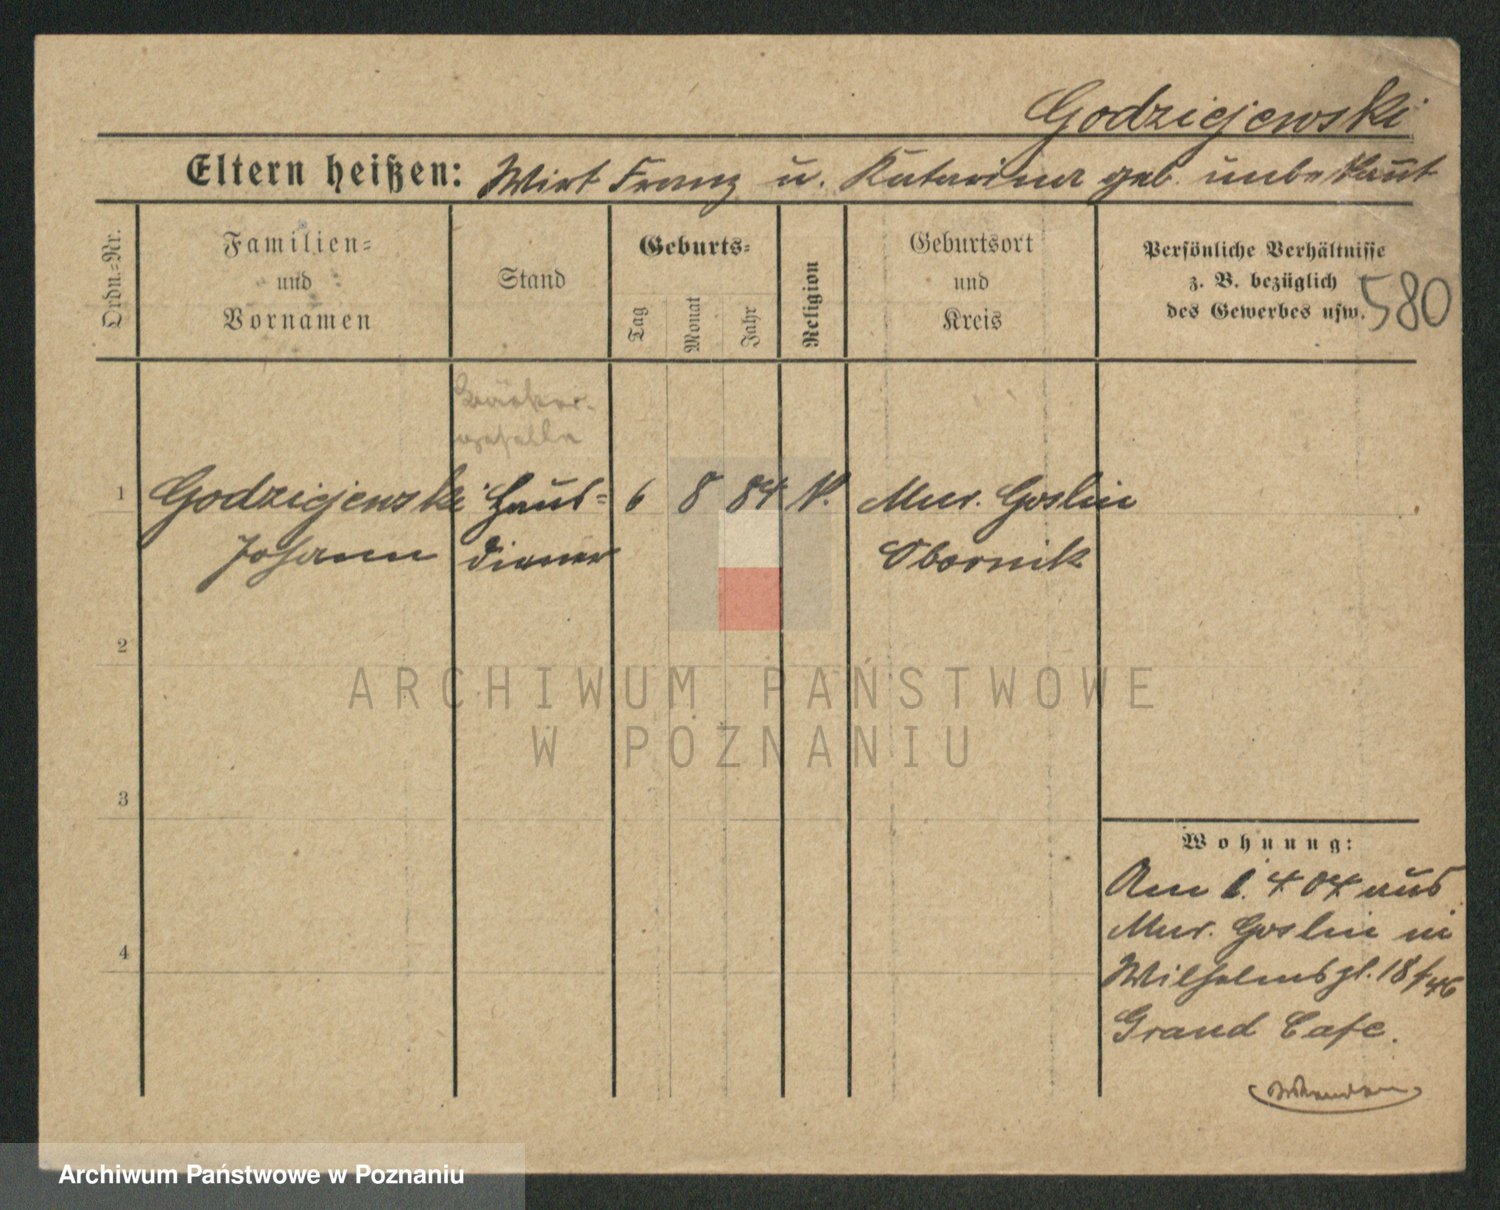 Godziejewski
Eltern heißen: Wirt Franz u. Katarina geb. unbekannt
Ordn.=Nr.
Familien=
und
Vornamen
Stand
Geburts=
Tag
Monat
Jahr
Religion
Geburtsort
und
Kreis
Persönliche Verhältnisse
z. B. bezüglich
des Gewerbes usw.
580
Bäcker-
geselle
1 Godziejewski Haus= 6 8 84 k. Mur. Goslin
Johann diener Obornik
2
3
4
Wohnung:
Am 1. 4 04 aus
Mur. Goslin in
Wilhelmspl. 18
Grand Cafe.
ARCHIWUM PAŃSTWOWE
W POZNANIU
Archiwum Państwowe w Poznaniu